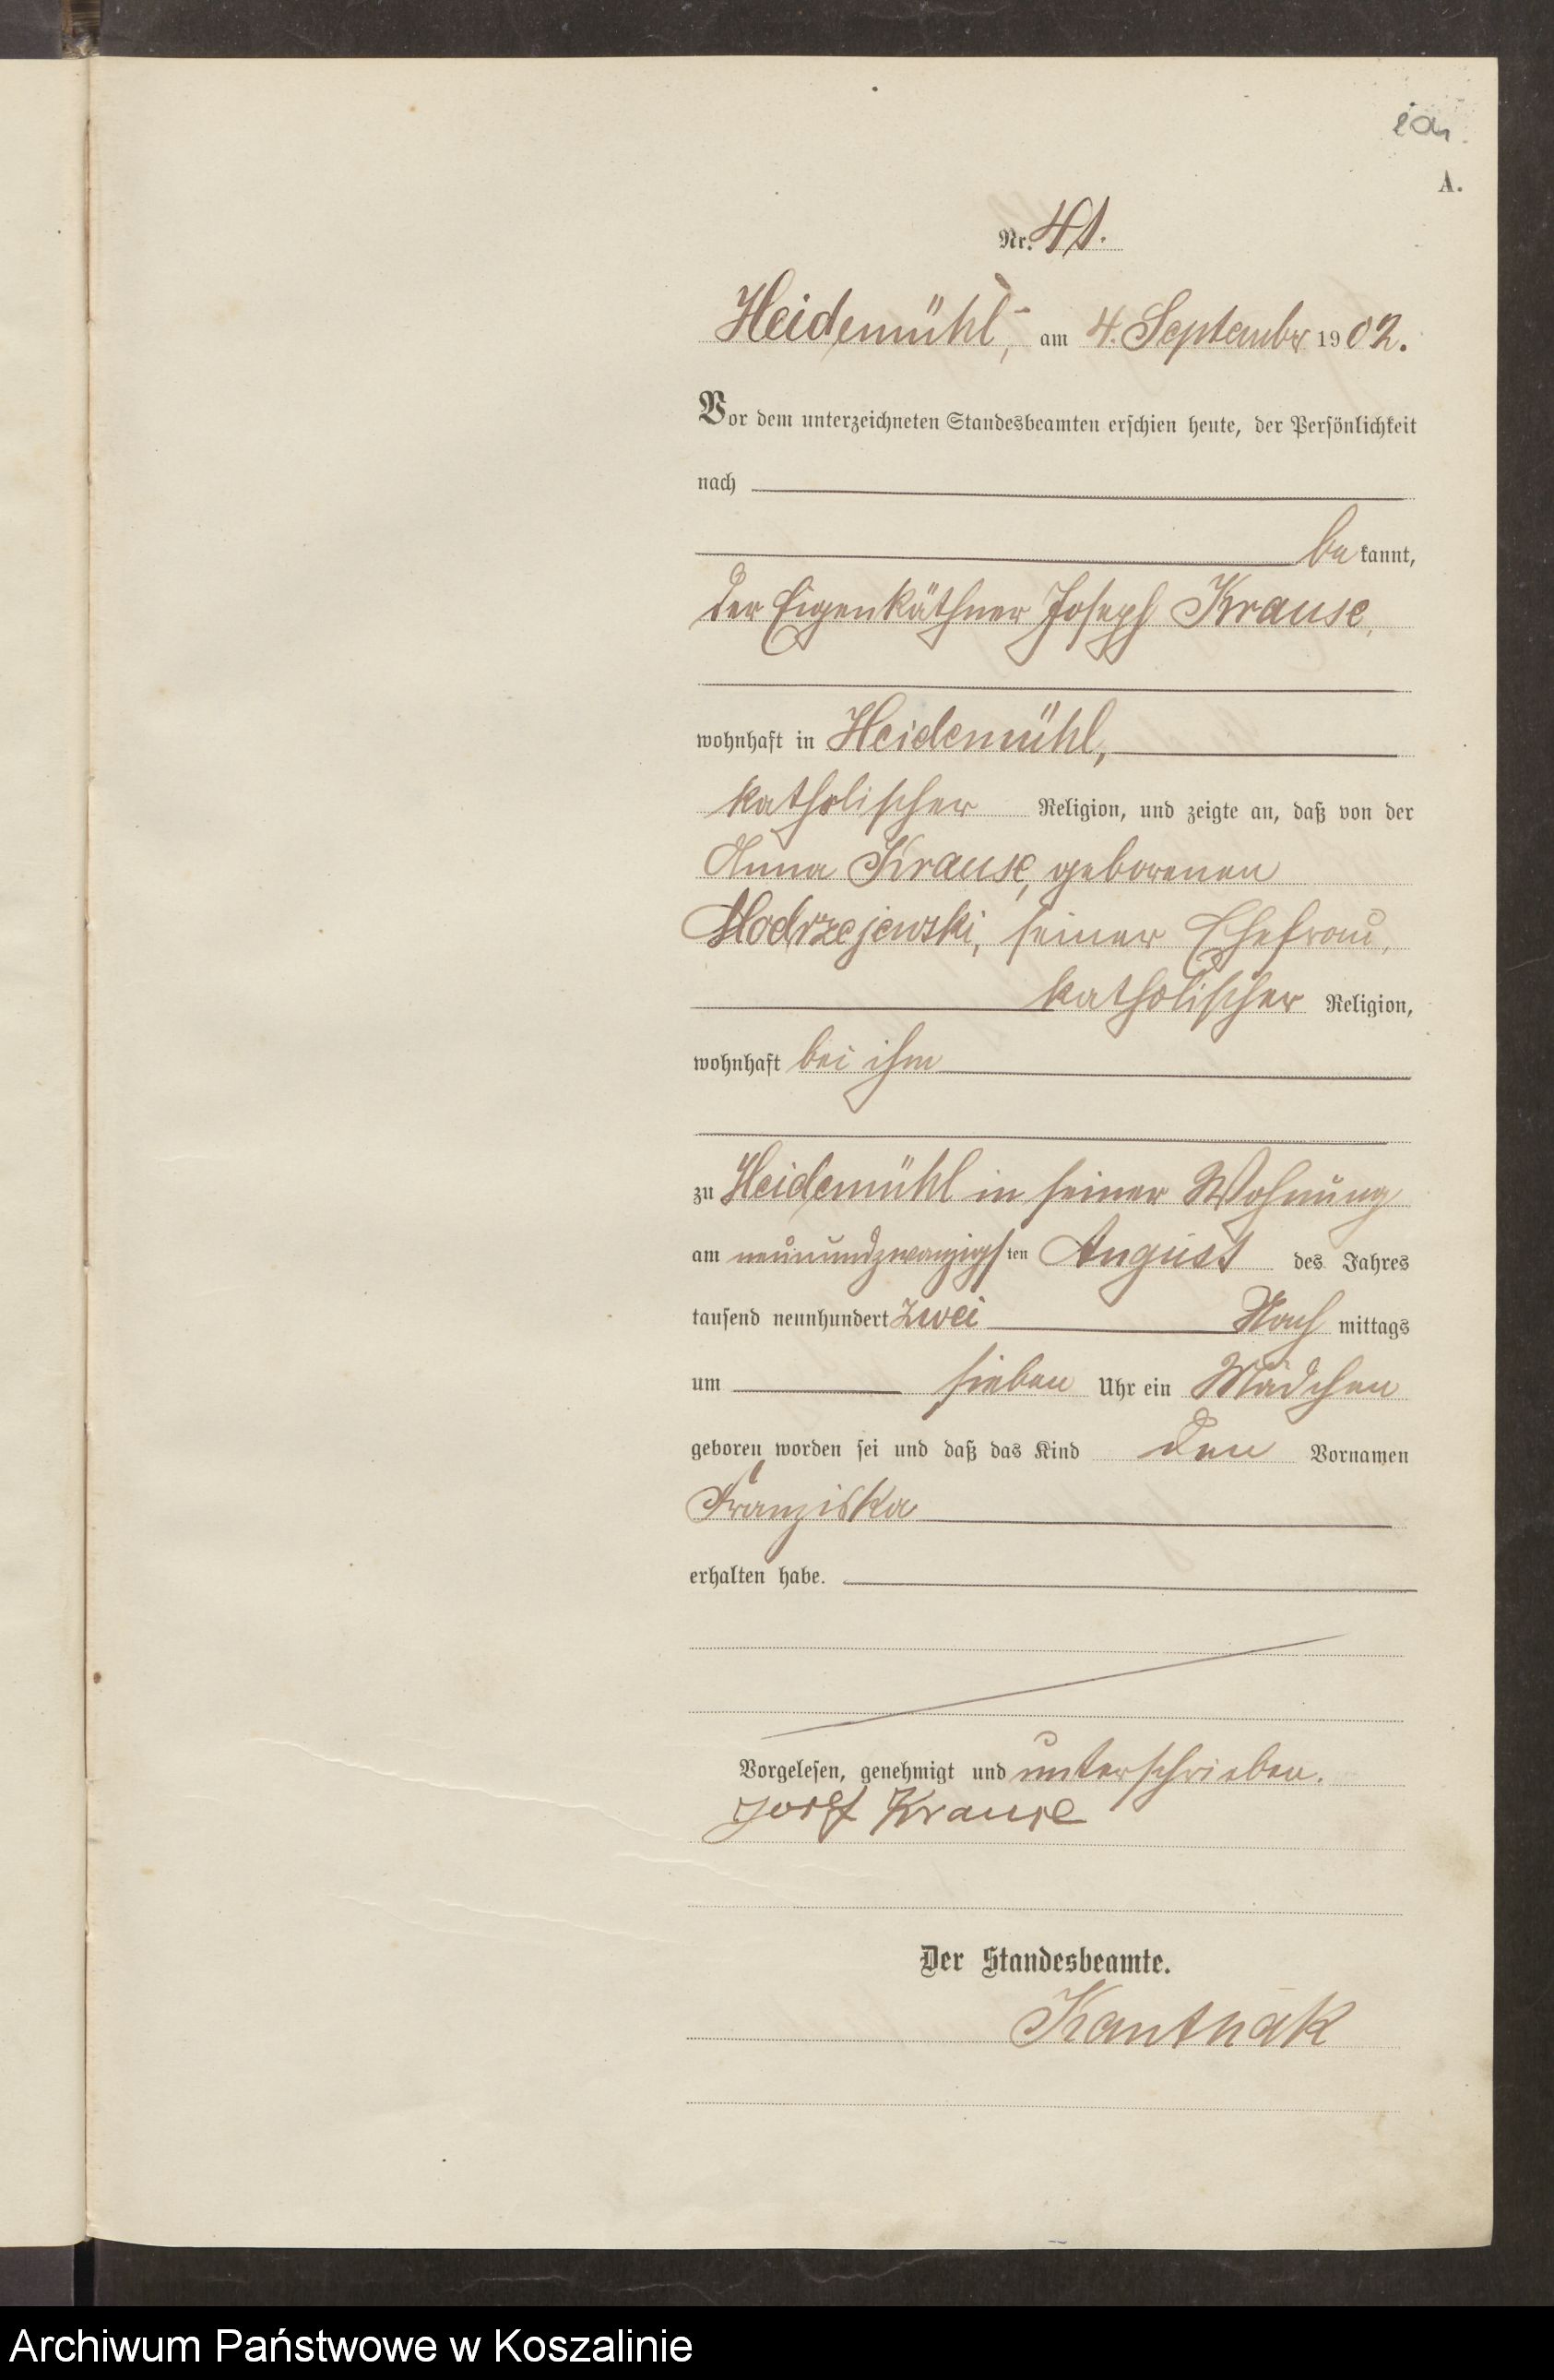 A.
Nr. 41.
Heidemühl, am 4. September 1902.
Vor dem unterzeichneten Standesbeamten erschien heute, der Persönlichkeit
nach
be kannt,
der Eigenkäthner Joseph Krause,
wohnhaft in Heidemühl,
katholischer Religion, und zeigte an, daß von der
Anna Krause, geborenen
Modrzejewski, seiner Ehefrau,
katholischer Religion,
wohnhaft bei ihm
zu Heidemühl in seiner Wohnung
am neunundzwanzigsten August des Jahres
tausend neunhundert zwei Nach mittags
um sieben Uhr ein Mädchen
geboren worden sei und daß das Kind den Vornamen
Franziska
erhalten habe.
Vorgelesen, genehmigt und unterschrieben.
Josef Krause
Der Standesbeamte.
Kanthak
Archiwum Państwowe w Koszalinie